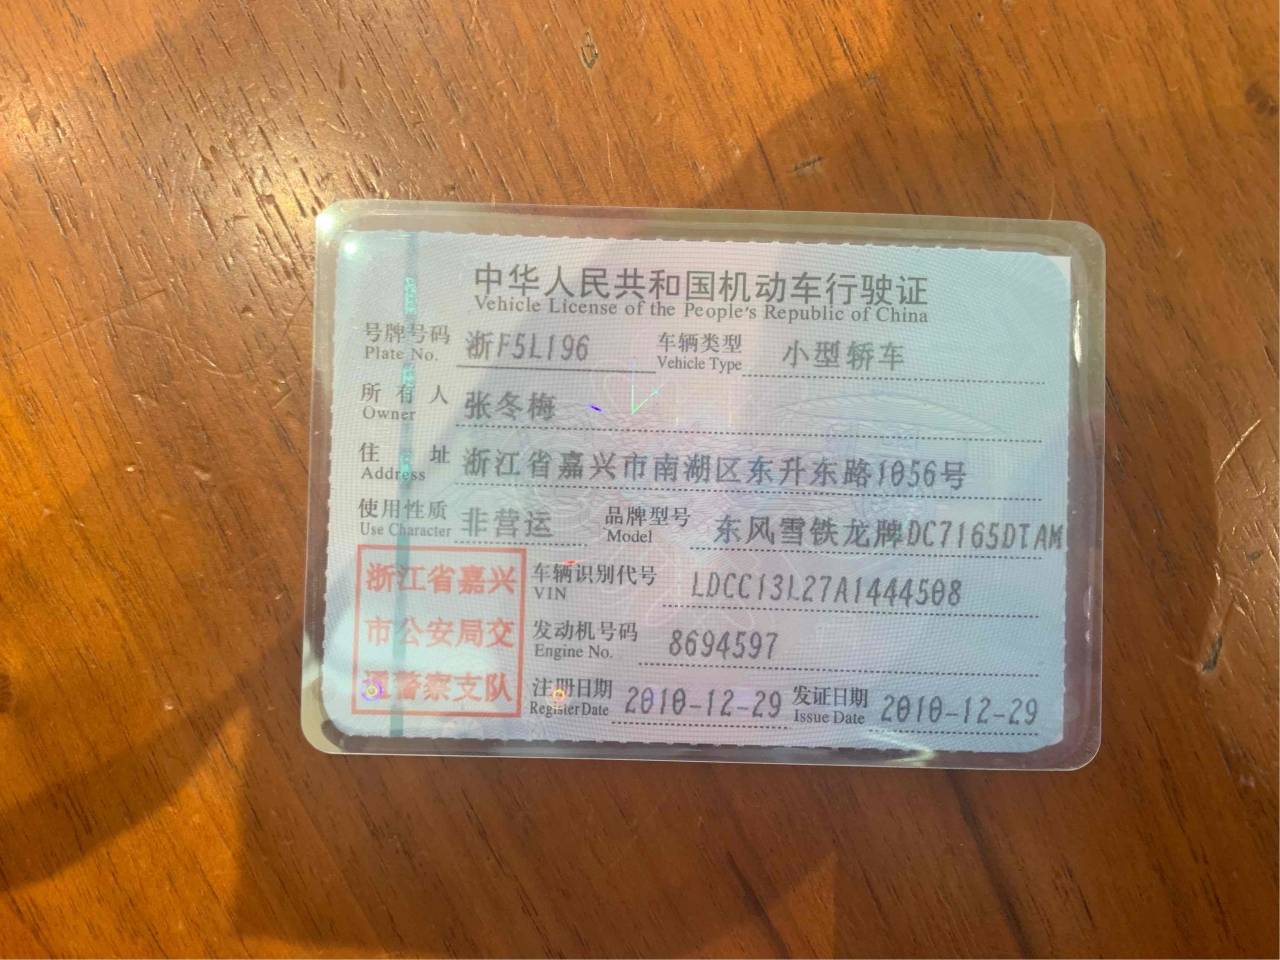 中华人民共和国机动车行驶证
Vehicle License of the People's Republic of China
号牌号码 浙F5L196 车辆类型 小型轿车
Plate No. Vehicle Type
所有人 张冬梅
Owner
住址 浙江省嘉兴市南湖区东升东路1056号
Address
使用性质 非营运 品牌型号 东风雪铁龙牌DC7165DTAM
Use Character Model
浙江省嘉兴
市公安局交
通警察支队
车辆识别代号 LDCC13L27A1444508
VIN
发动机号码 8694597
Engine No.
注册日期 2010-12-29 发证日期 2010-12-29
Register Date Issue Date